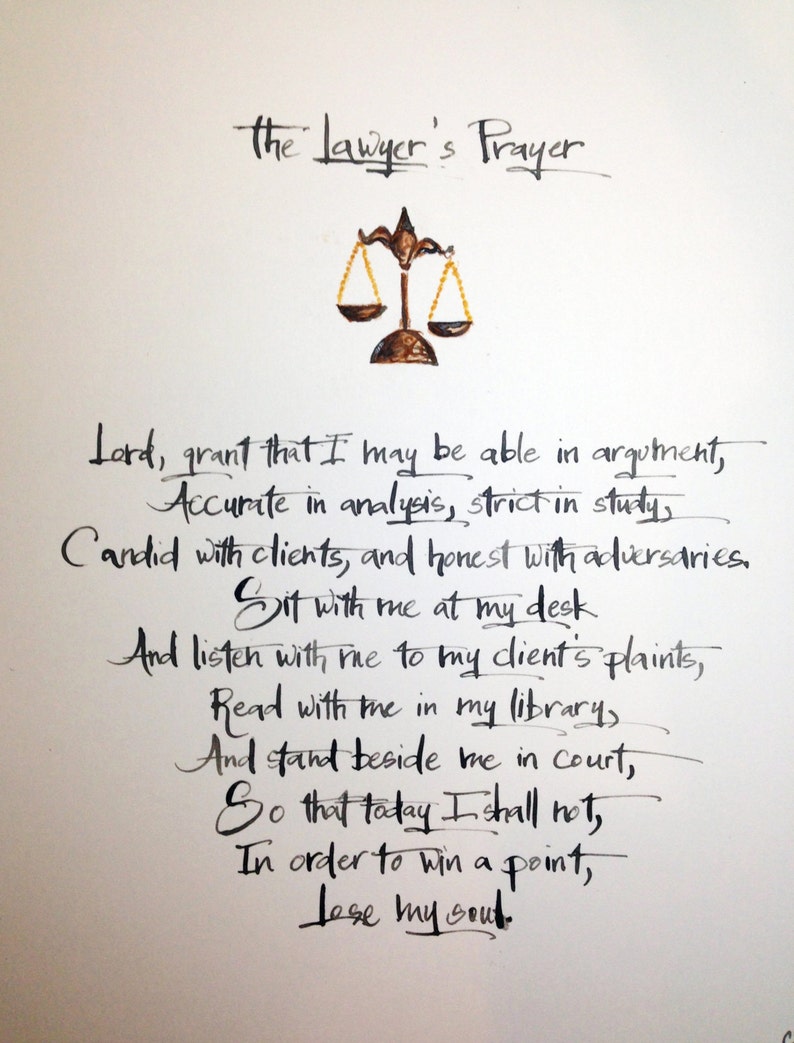 The Lawyer's Prayer
Lord, grant that I may be able in argument,
Accurate in analysis, strict in study,
Candid with clients, and honest with adversaries.
Sit with me at my desk
And listen with me to my client's plaints,
Read with me in my library,
And stand beside me in court,
So that today I shall not,
In order to win a point,
Lose my soul.